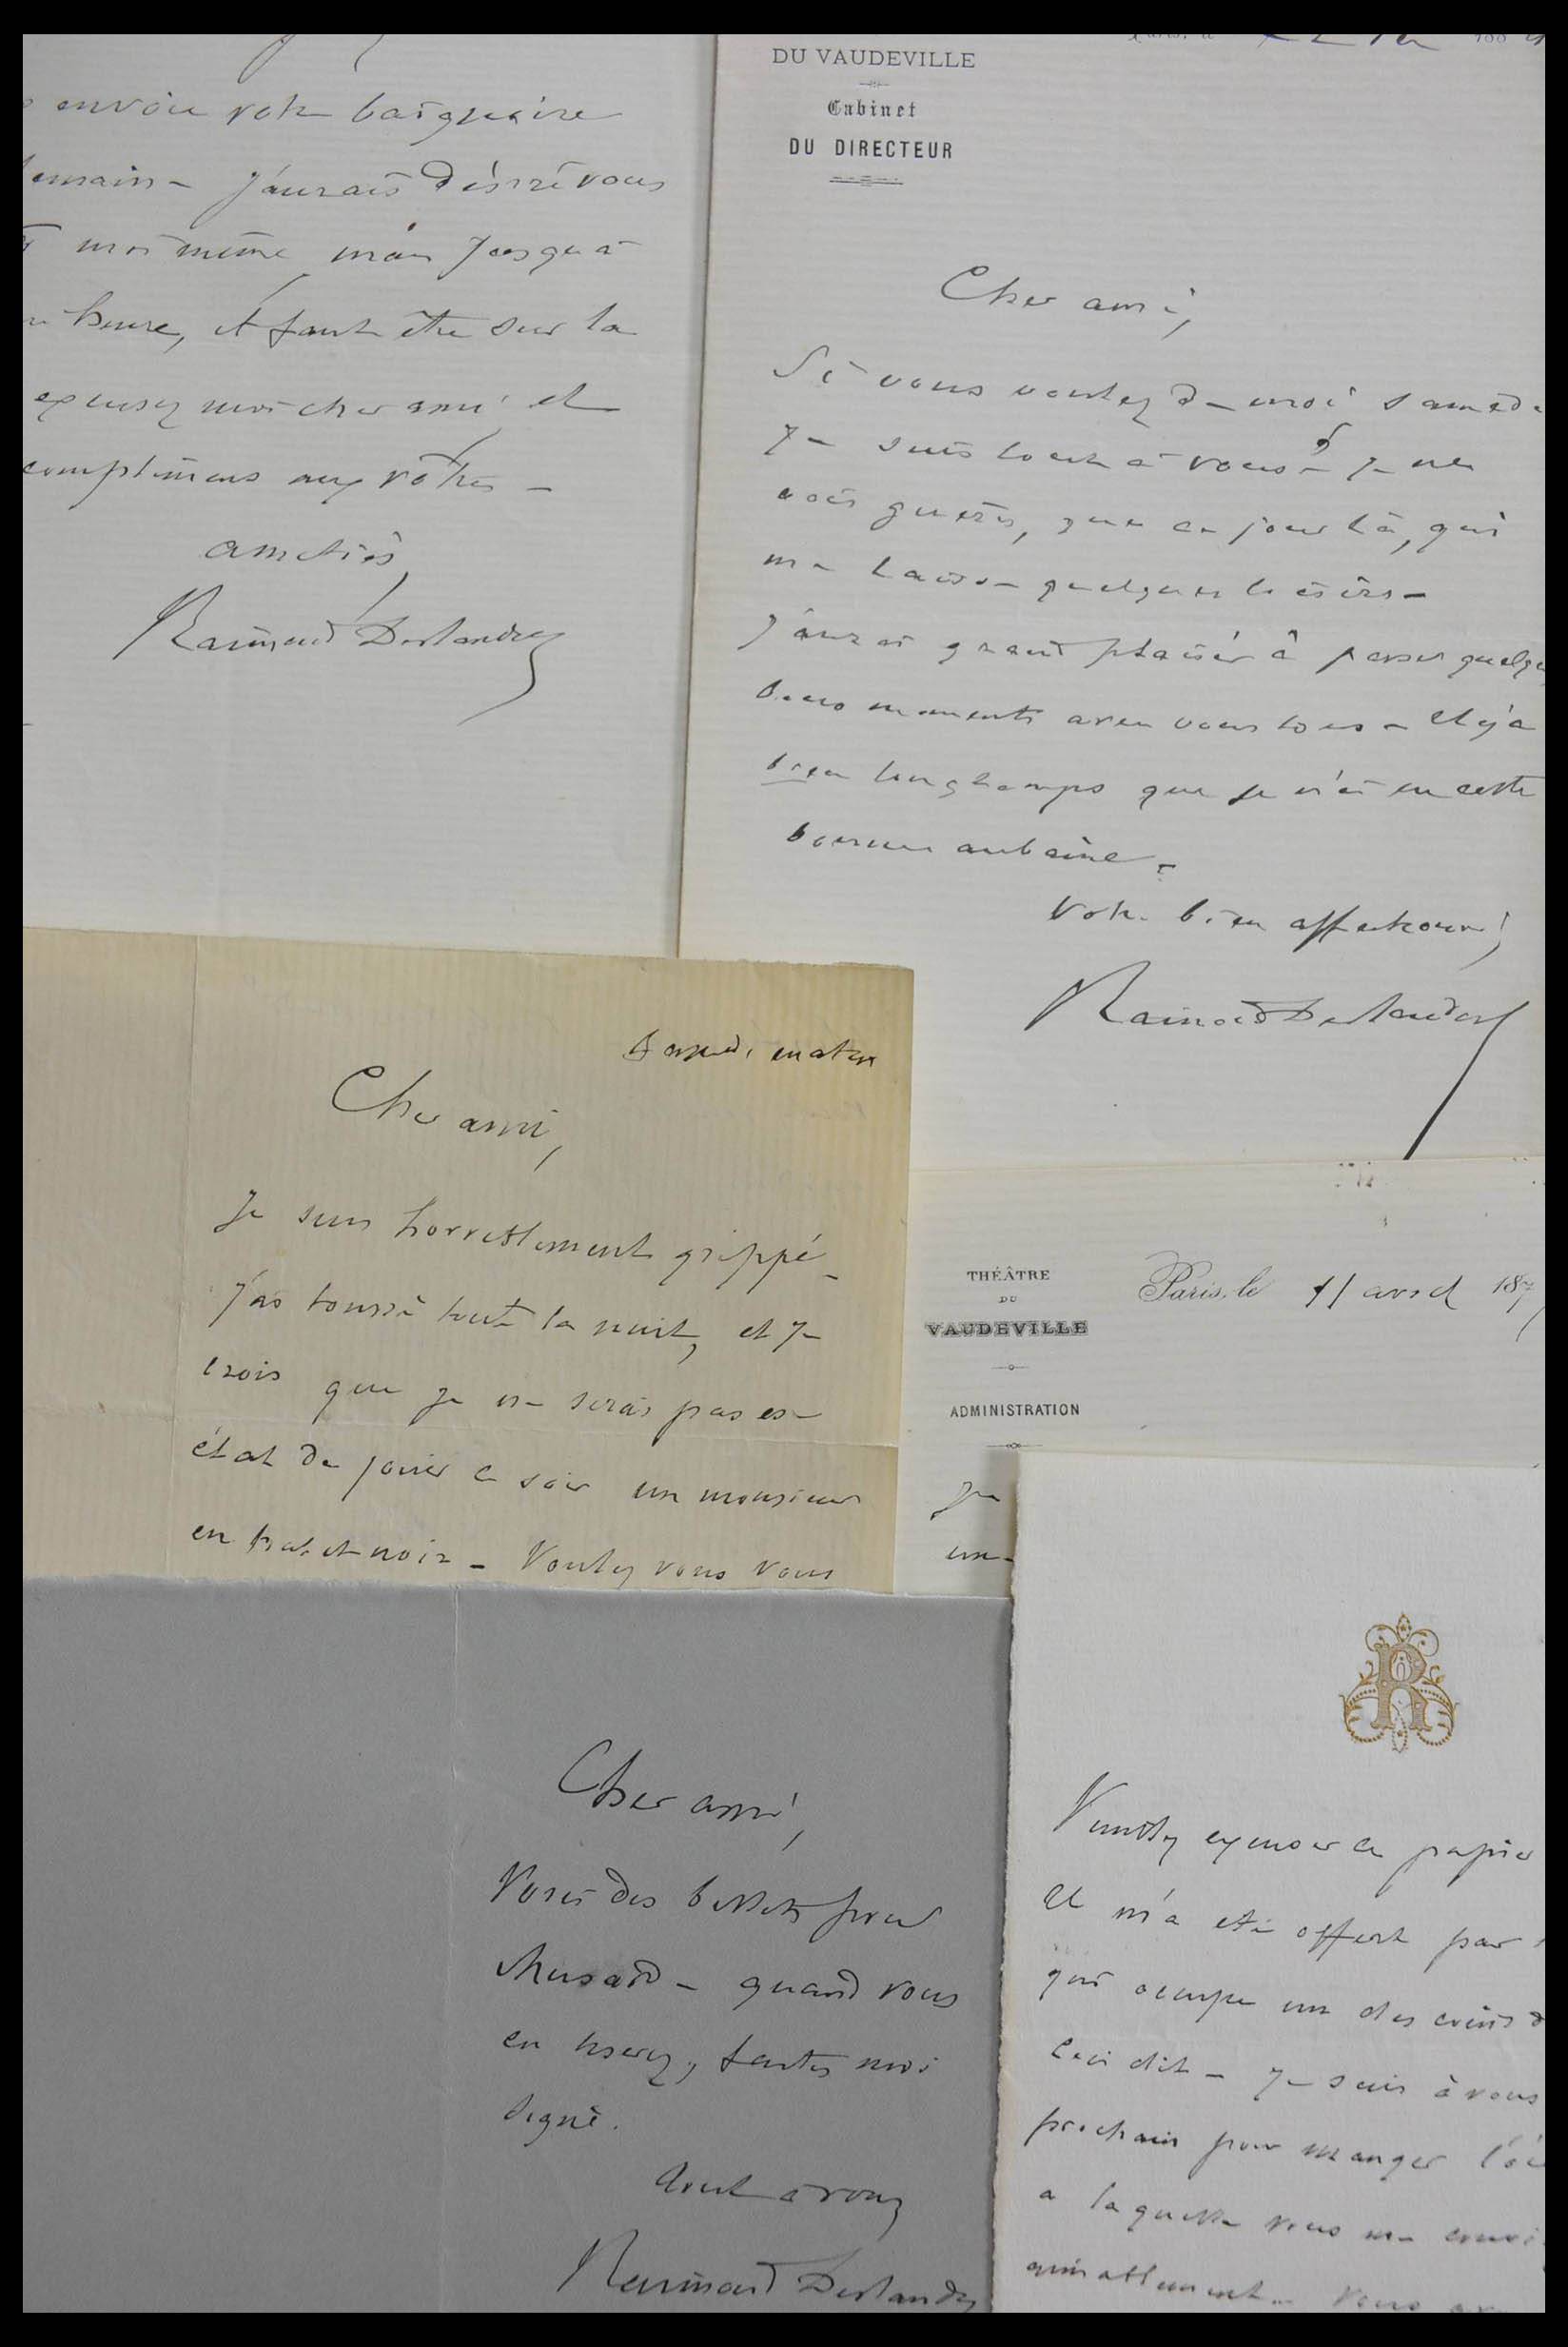 envoie votre baignoire
demain - J'aurais désiré vous
moi même, mais jusqu'à
heure, il faut être sur la
excusez moi cher ami, et
complimens aux vôtres -
amitiés,
Raimond Deslandes
DU VAUDEVILLE
Cabinet
DU DIRECTEUR
Cher ami,
Si vous voulez de moi samedi
je suis tout à vous - je ne
vois guères, que ce jour là, qui
me laisse quelques loisirs -
J'aurai grand plaisir à passer quelques
bons moments avec vous tous - Il y a
bien longtemps que je n'ai eu cette
bonne aubaine.
Votre bien affectionné,
Raimond Deslandes
Samedi matin
Cher ami,
Je suis horriblement grippé -
J'ai toussé toute la nuit, et je
crois que je ne serai pas en
état de jouer ce soir un monsieur
en habit noir - Voulez vous vous
THÉÂTRE
DU
VAUDEVILLE
ADMINISTRATION
Paris, le 11 avril 187
Je
un
Cher ami,
Voici des billets pour
Musard - quand vous
en userez, faites moi
signe.
Tout à vous
Raimond Deslandes
R
Veuillez excuser ce papier
Il m'a été offert par
qui occupe un des coins d
Ceci dit - je suis à vous
prochain pour manger l'oie
a laquelle vous me convi
amicalement - Vous